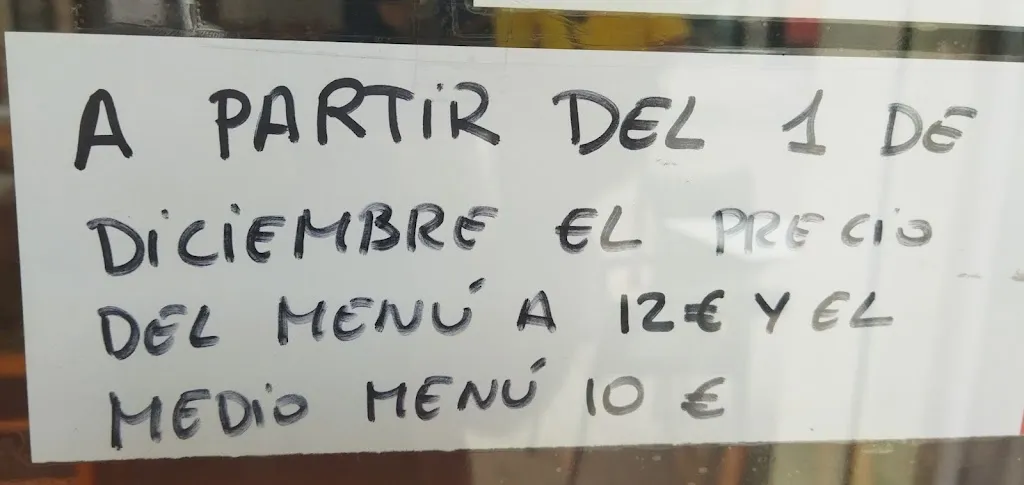 A PARTiR DEL 1 DE
DiCiEMBRE EL PRECiO
DEL MENÚ A 12€ Y EL
MEDiO MENÚ 10 €